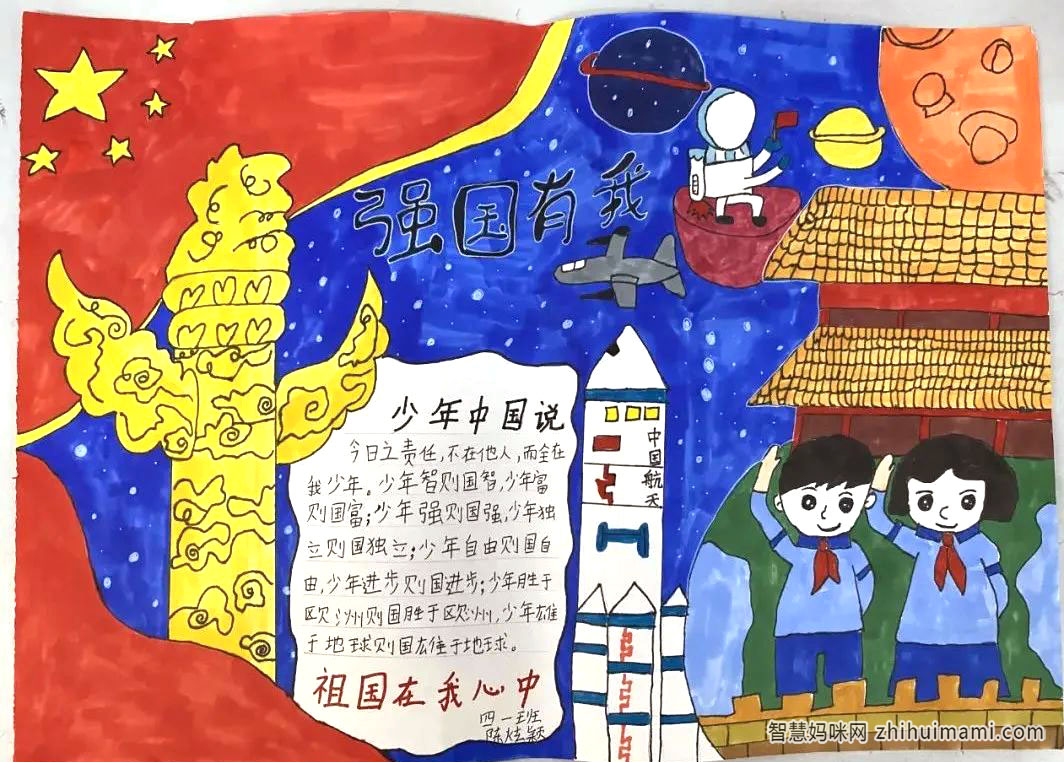 强国有我
少年中国说
今日之责任,不在他人,而全在
我少年。少年智则国智,少年富
则国富;少年强则国强,少年独
立则国独立;少年自由则国自
由,少年进步则国进步;少年胜于
欧洲则国胜于欧洲,少年雄
于地球则国雄于地球。
祖国在我心中
四一班
陈炫颖
中国航天
智慧妈咪网 zhihuimami.com